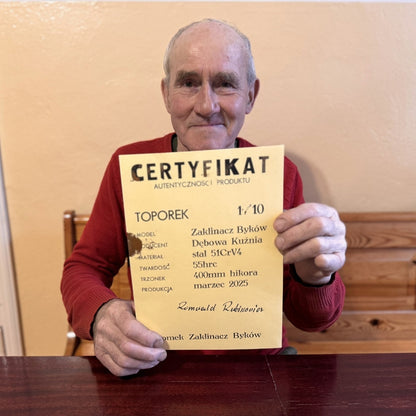 CERTYFIKAT
AUTENTYCZNOŚCI PRODUKTU
TOPOREK 1/10
MODEL Zaklinacz Byków
PRODUCENT Dębowa Kuźnia
MATERIAŁ stal 51CrV4
TWARDOŚĆ 55hrc
TRZONEK 400mm hikora
PRODUKCJA marzec 2025
Romuald
Zaklinacz Byków